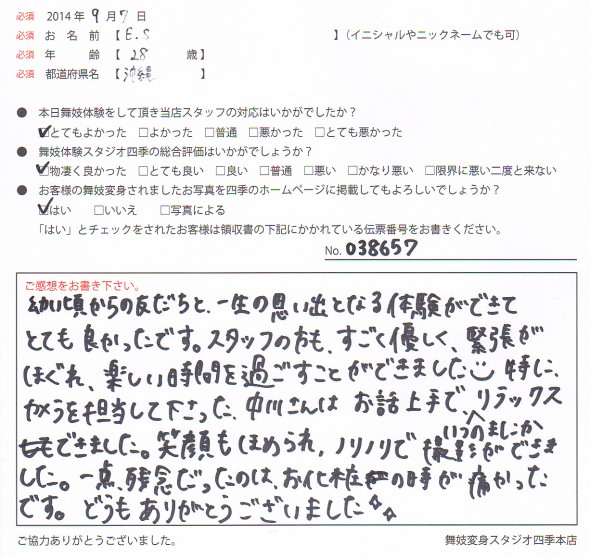 必須 2014年9月7日
必須 お名前【 E.S 】(イニシャルやニックネームでも可)
必須 年齢【 28 歳】
必須 都道府県名【 沖縄 】
● 本日舞妓体験をして頂き当店スタッフの対応はいかがでしたか？
☑とてもよかった □よかった □普通 □悪かった □とても悪かった
● 舞妓体験スタジオ四季の総合評価はいかがでしょうか？
☑物凄く良かった □とても良い □良い □普通 □悪い □かなり悪い □限界に悪い二度と来ない
● お客様の舞妓変身されましたお写真を四季のホームページに掲載してもよろしいでしょうか？
☑はい □いいえ □写真による
「はい」とチェックをされたお客様は領収書の下記にかかれている伝票番号をお書きください。
No. 038657
ご感想をお書き下さい。
幼い頃からの友だちと、一生の思い出となる体験ができて
とても良かったです。スタッフの方も、すごく優しく、緊張が
ほぐれ、楽しい時間を過ごすことができました 特に、
カメラを担当して下さった、中川さんは お話上手で、リラックス
もできました。笑顔もほめられ、ノリノリで いつのまにか撮影ができま
した。一点、残念だったのは、お化粧の時が痛かった
です。どうもありがとうございました☆
ご協力ありがとうございました。
舞妓変身スタジオ四季本店